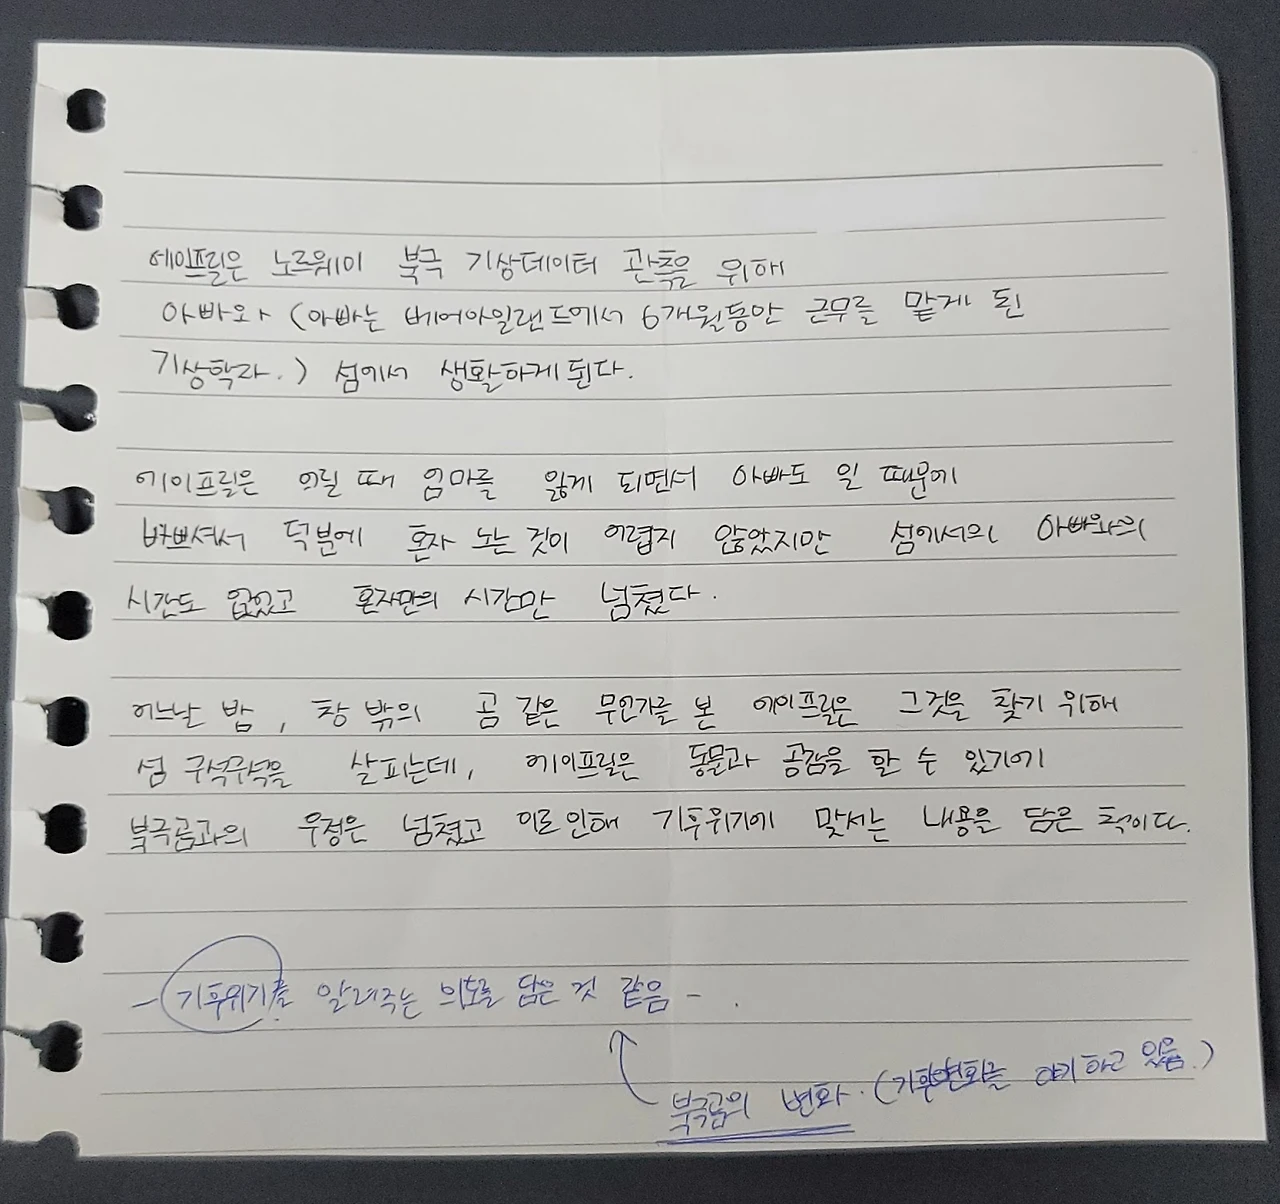 에이프릴은 노르웨이 북극 기상데이터 관측을 위해
아빠와 (아빠는 베어아일랜드에서 6개월동안 근무를 맡게 된
기상학자.) 섬에서 생활하게 된다.
에이프릴은 어릴 때 엄마를 잃게 되면서 아빠도 일 때문에
바쁘셔서 덕분에 혼자 노는 것이 어렵지 않았지만 섬에서의 아빠와의
시간도 없었고 혼자만의 시간만 넘쳤다.
어느날 밤, 창 밖의 곰 같은 무언가를 본 에이프릴은 그것을 찾기 위해
섬 구석구석을 살피는데, 에이프릴은 동물과 공감을 할 수 있기에
북극곰과의 우정은 넘쳤고 이로인해 기후위기에 맞서는 내용을 담은 책이다.
- 기후위기를 알려주는 의도를 담은 것 같음 - .
북극곰의 변화. (기후변화를 야기하고 있음.)